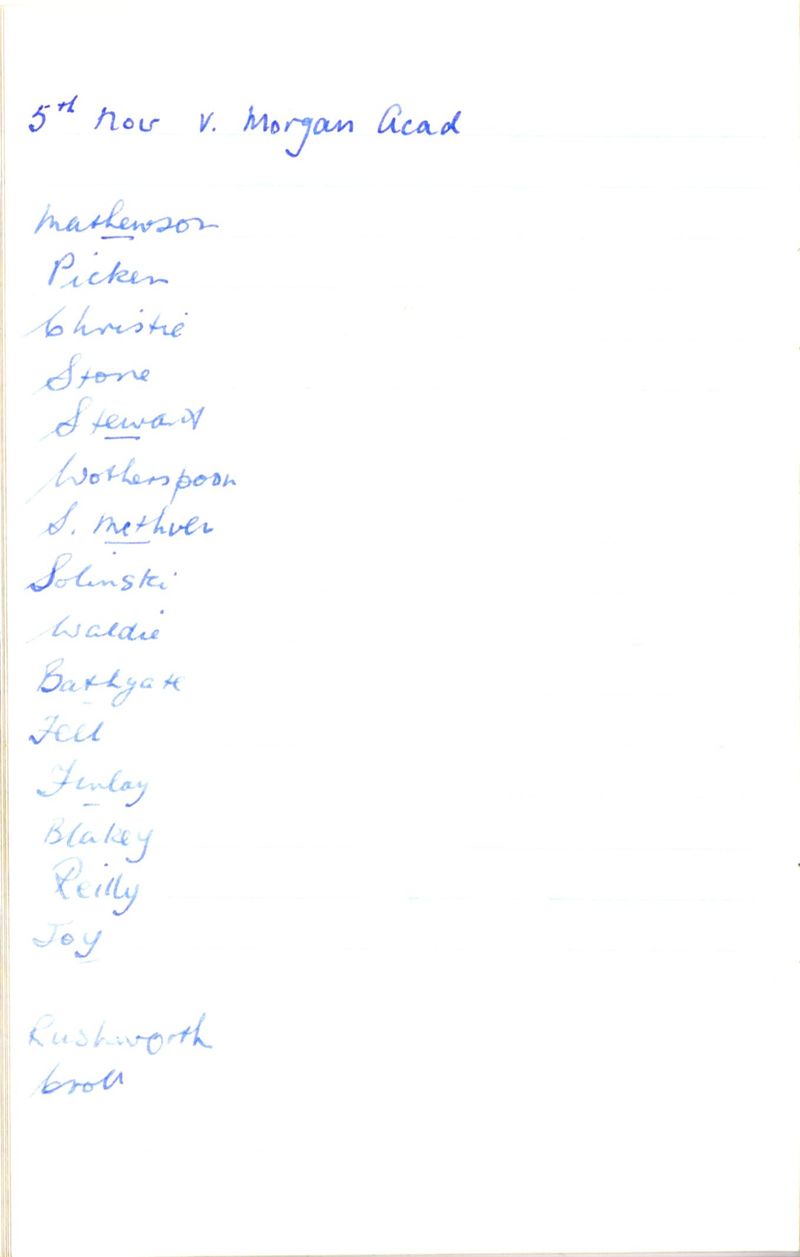 5th Nov v. Morgan Acad
Mathewson
Picken
Christie
Stone
Stewart
Wotherspoon
S. Methven
Solinski
Waldie
Bathgate
Fell
Finlay
Blakey
Reilly
Joy
Rushworth
Croll